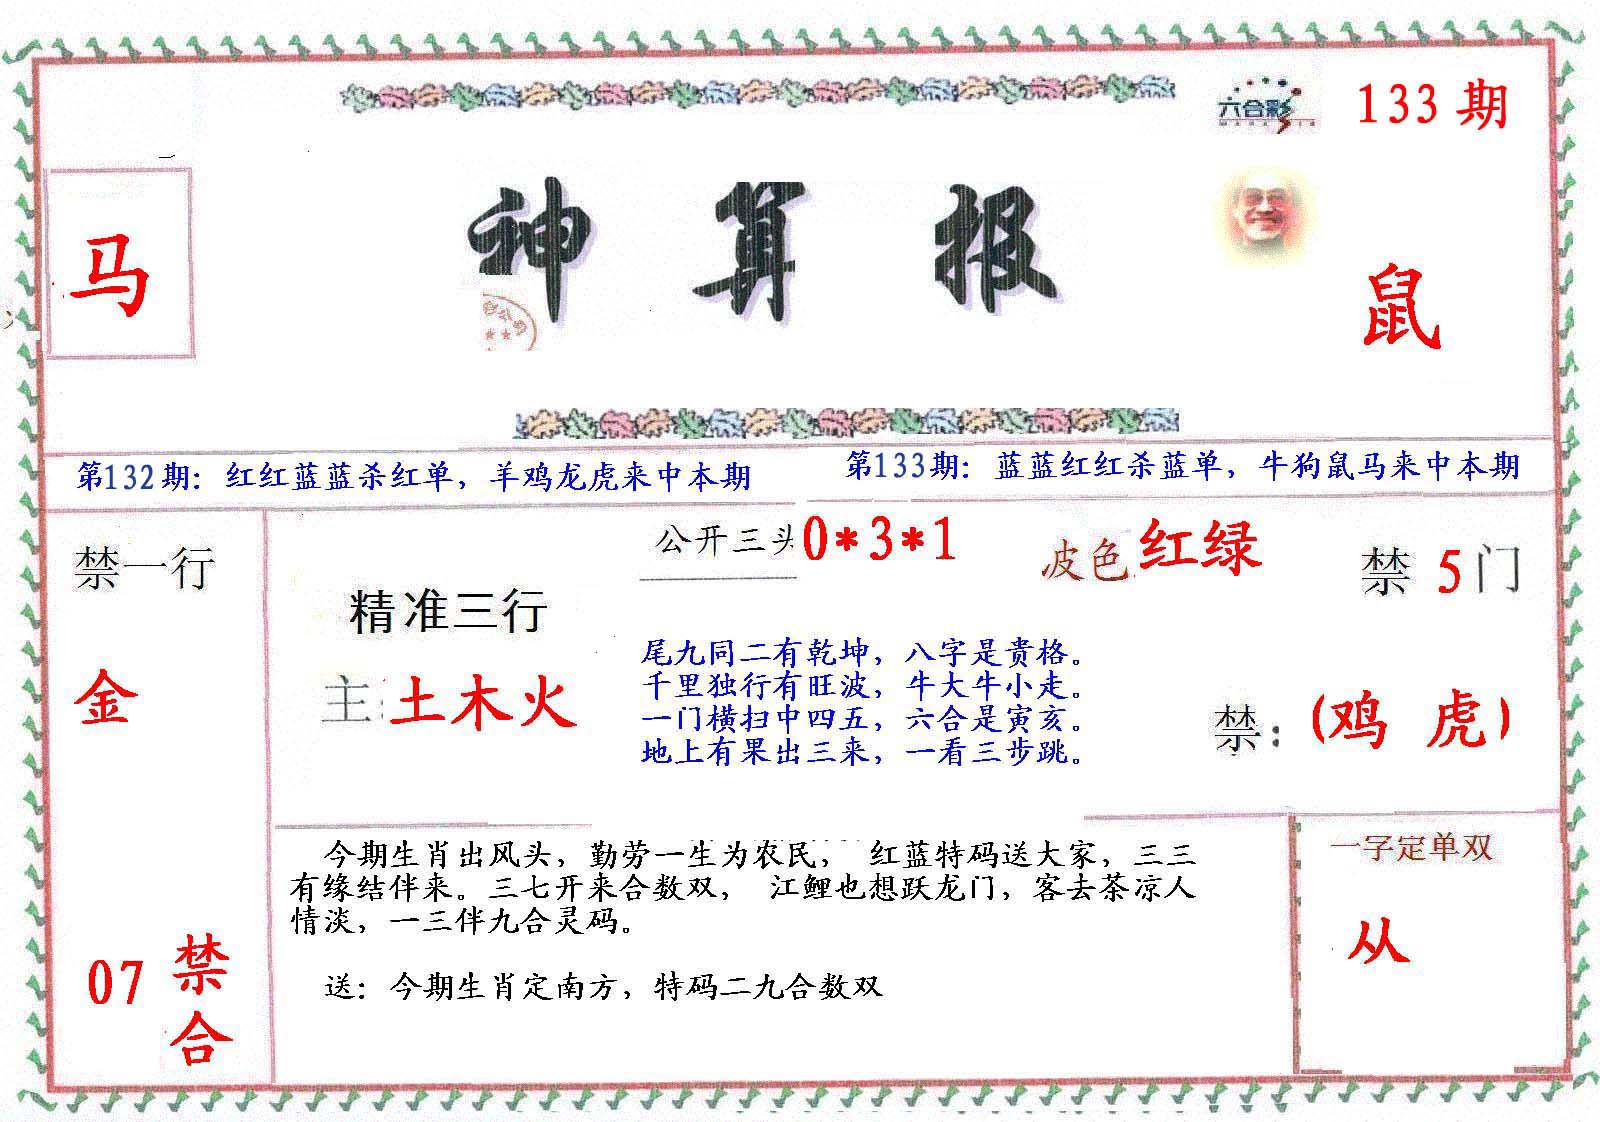 六合彩
133期
马
神算报
鼠
第132期：红红蓝蓝杀红单，羊鸡龙虎来中本期
第133期：蓝蓝红红杀蓝单，牛狗鼠马来中本期
禁一行
金
07禁合
公开三头0*3*1
皮色 红绿
禁5门
精准三行
主：土木火
尾九同二有乾坤，八字是贵格。
千里独行有旺波，牛大牛小走。
一门横扫中四五，六合是寅亥。
地上有果出三来，一看三步跳。
禁：（鸡 虎）
今期生肖出风头，勤劳一生为农民， 红蓝特码送大家，三三
有缘结伴来。三七开来合数双， 江鲤也想跃龙门，客去茶凉人
情淡，一三伴九合灵码。
送：今期生肖定南方，特码二九合数双
一字定单双
从